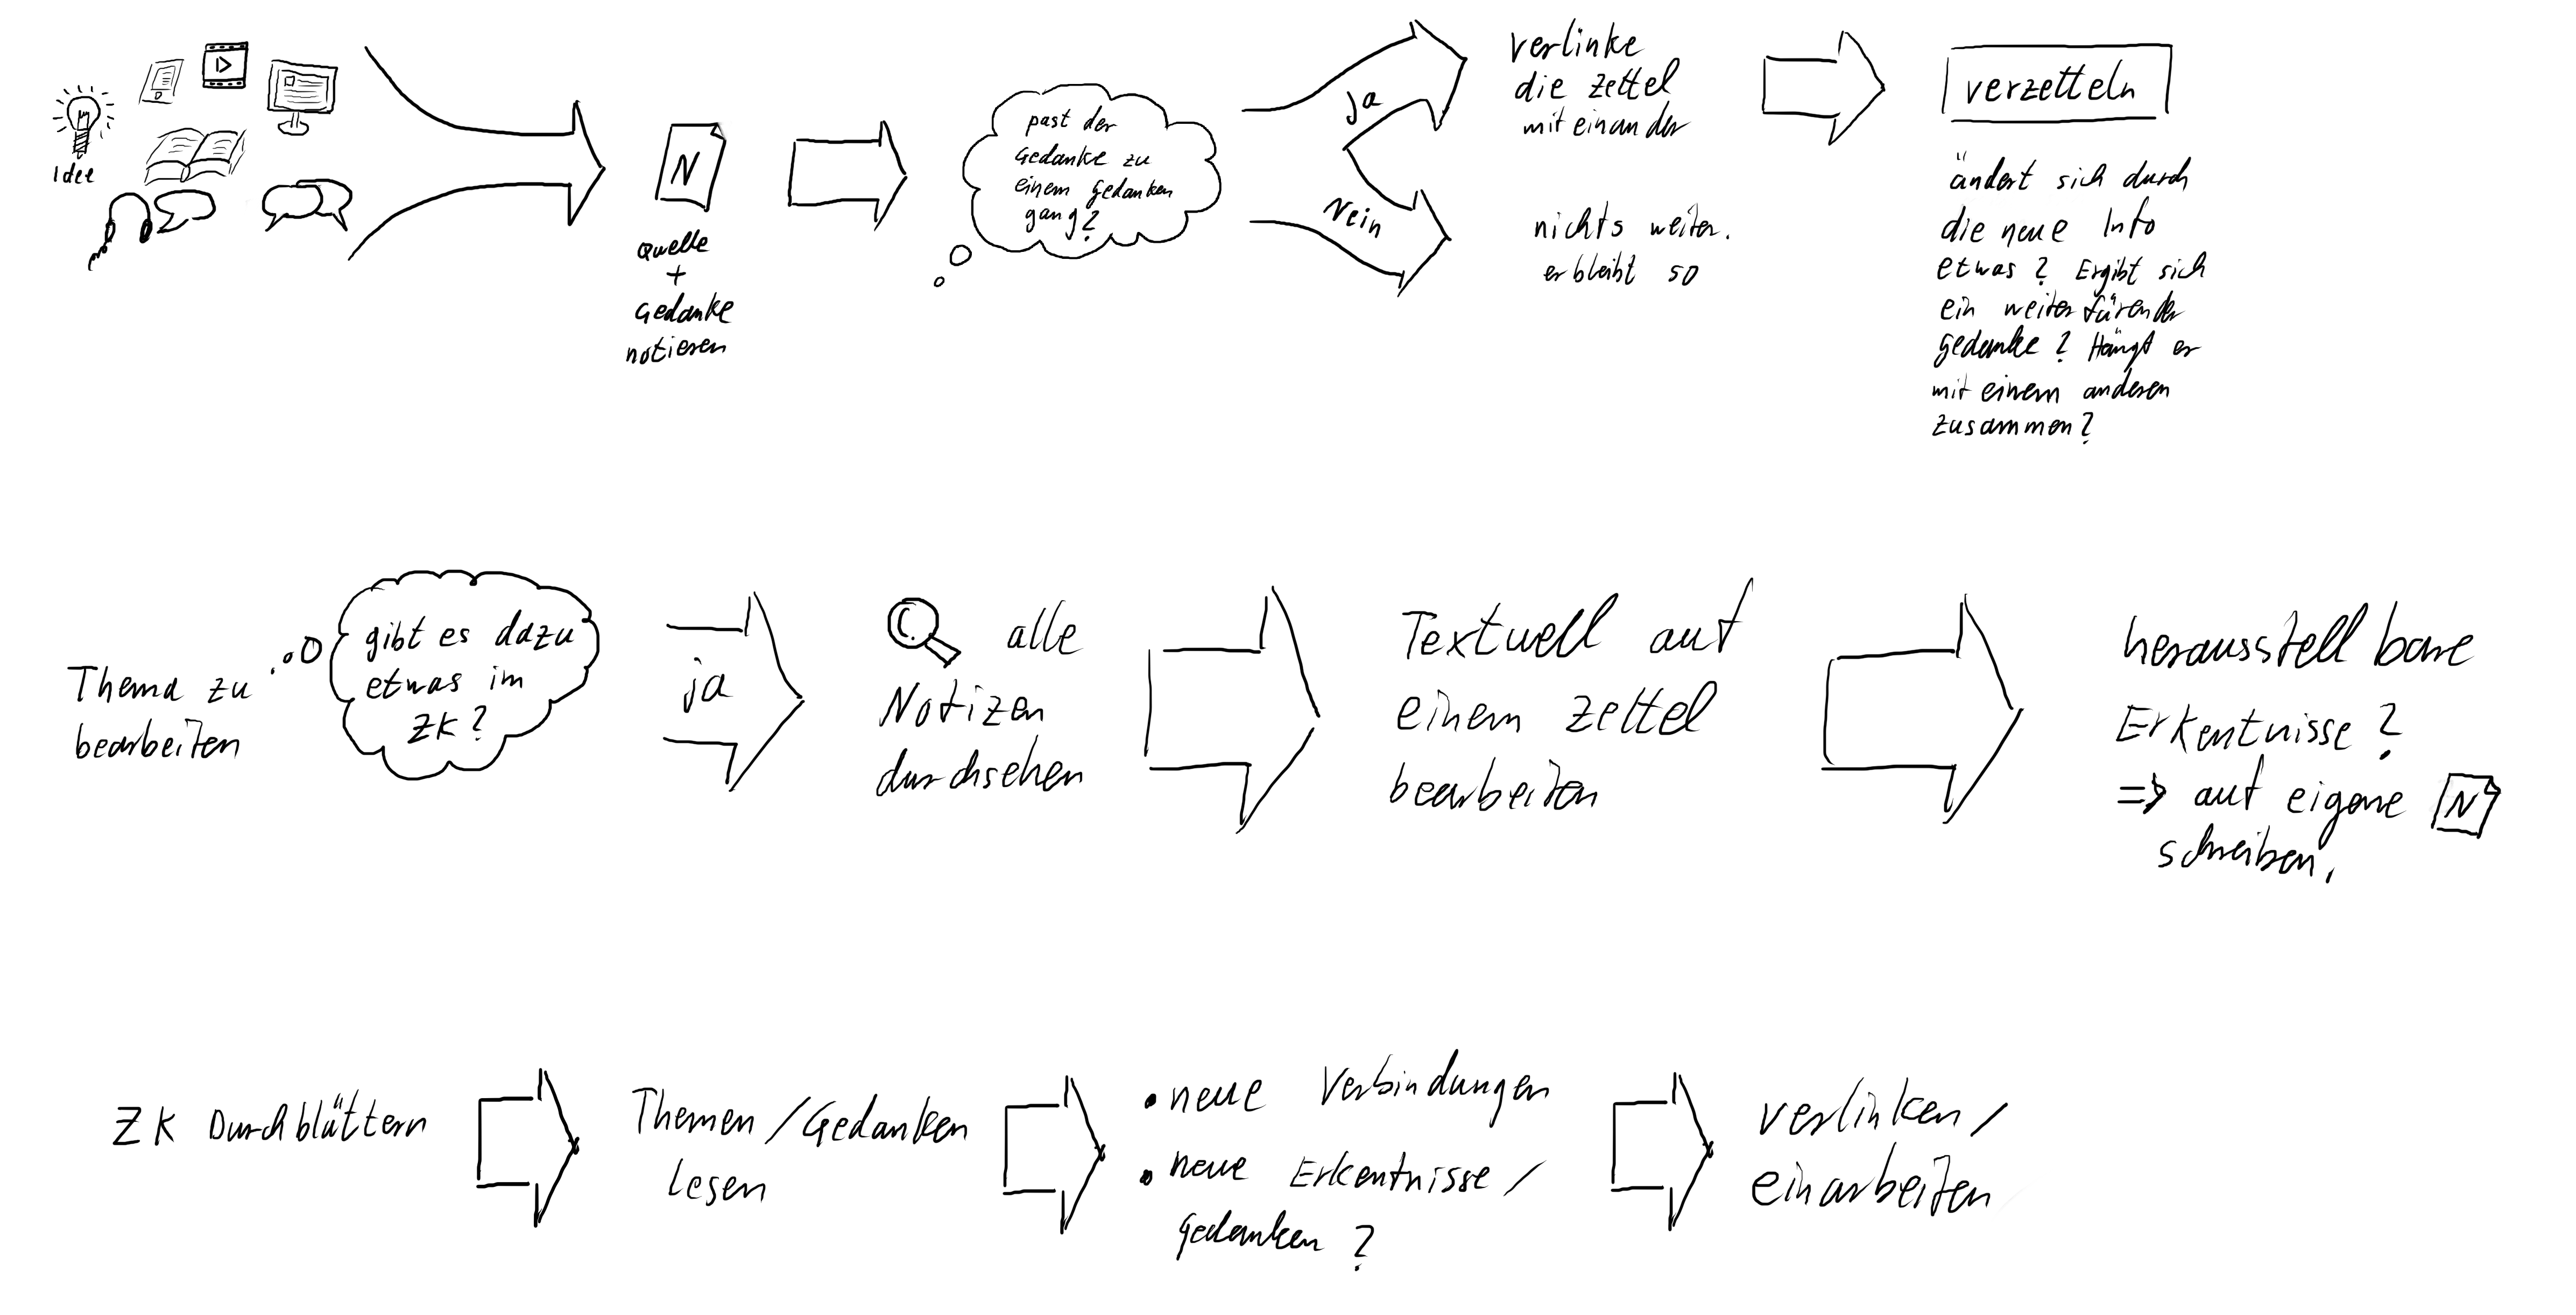 Idee
N
Quelle
+
Gedanke
notieren
past der
Gedanke zu
einem gedanken
gang?
ja
Nein
verlinke
die Zettel
miteinander
nichts weiter.
er bleibt so
verzetteln
ändert sich durch
die neue Info
etwas? Ergibt sich
ein weiterfürender
gedanke? Hängt er
mit einem anderen
zusammen?
Thema zu
bearbeiten
gibt es dazu
etwas im
ZK?
ja
alle
Notizen
durchsehen
Textuell auf
einem Zettel
bearbeiten
herausstellbare
Erkentnisse?
=> auf eigene N
schreiben.
ZK Durchblättern
Themen/Gedanken
lesen
• neue Verbindungen
• neue Erkentnisse/
gedanken?
verlinken/
einarbeiten